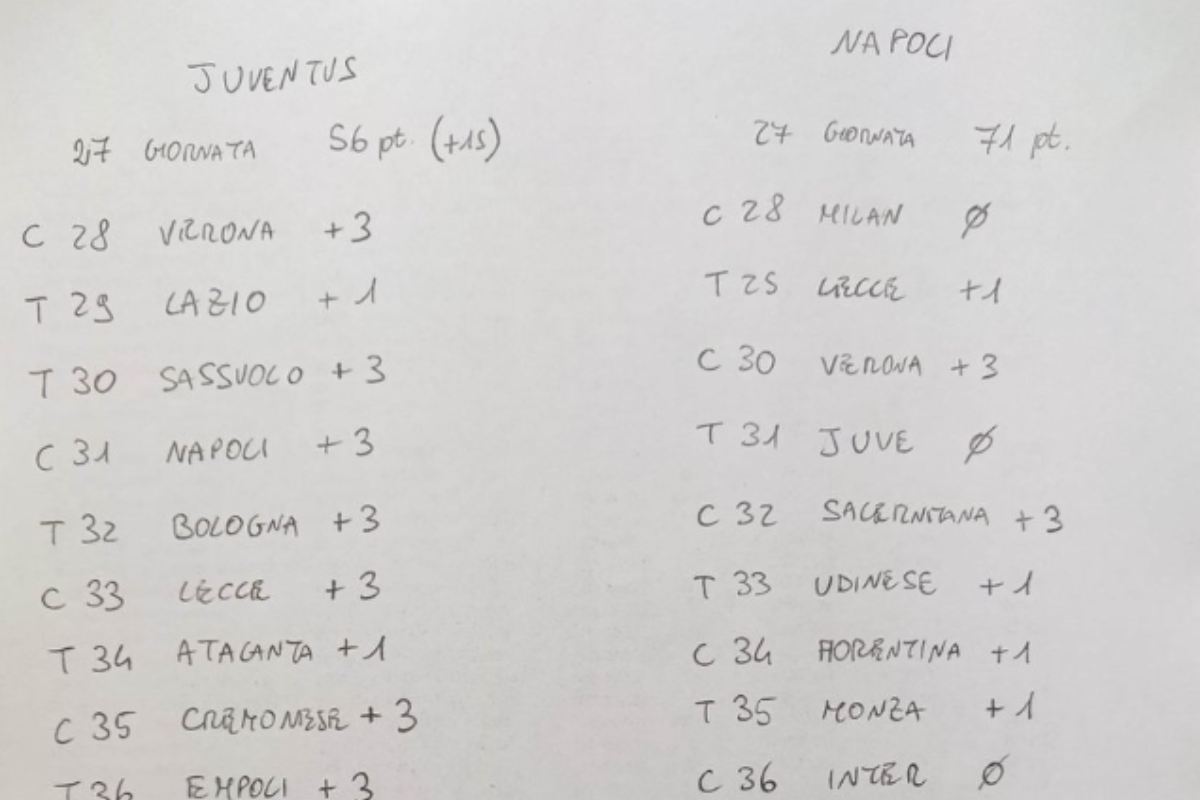 JUVENTUS
27 GIORNATA 56 pt. (+15)
C 28 VERONA +3
T 29 LAZIO +1
T 30 SASSUOLO +3
C 31 NAPOLI +3
T 32 BOLOGNA +3
C 33 LECCE +3
T 34 ATALANTA +1
C 35 CREMONESE +3
T 36 EMPOLI +3
NAPOLI
27 GIORNATA 71 pt.
C 28 MILAN Ø
T 29 LECCE +1
C 30 VERONA +3
T 31 JUVE Ø
C 32 SALERNITANA +3
T 33 UDINESE +1
C 34 FIORENTINA +1
T 35 MONZA +1
C 36 INTER Ø